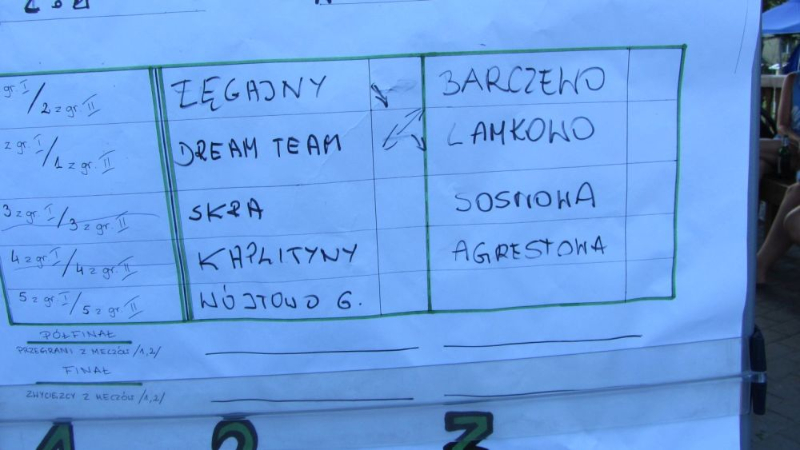 gr. I / 2 z gr. II ŻĘGAJNY BARCZEWO
2 gr. I / 1 z gr. II DREAM TEAM LAMKOWO
3 z gr. I / 3 z gr. II SKRA SOSNOWA
4 z gr. I / 4 z gr. II KAPLITYNY AGRESTOWA
5 z gr. I / 5 z gr. II WÓJTOWO G.
PÓŁFINAŁ
PRZEGRANI Z MECZÓW /1,2/
FINAŁ
ZWYCIĘZCY Z MECZÓW /1,2/
1 2 3